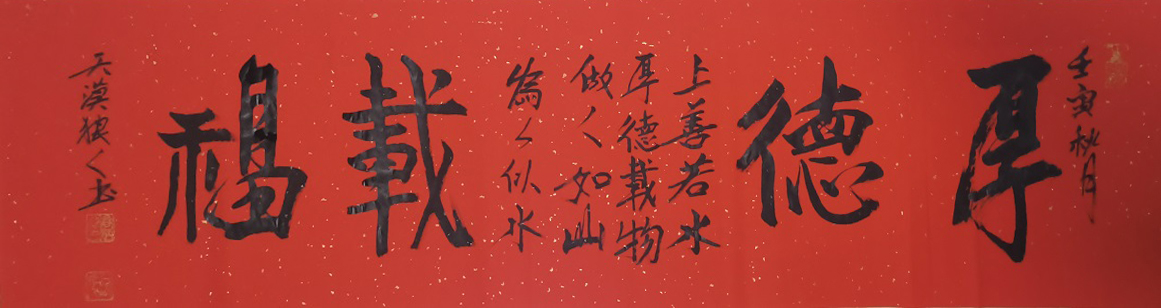 壬寅秋月
厚德
上善若水
厚德載物
做人如山
為人似水
載福
天漠狼人书